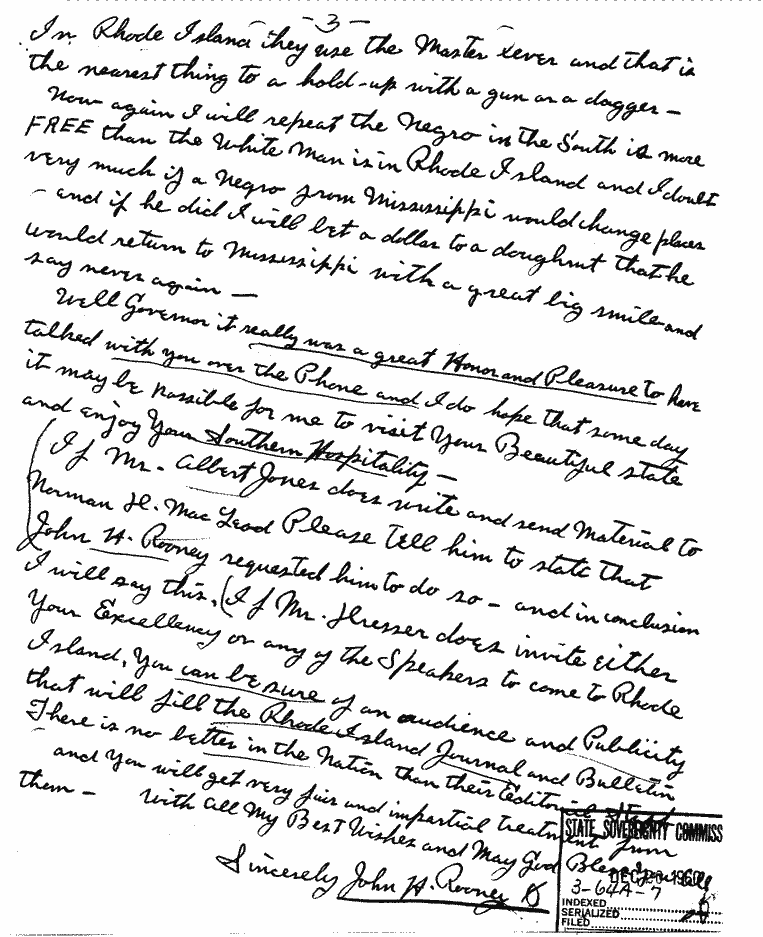 -3-
In Rhode Island they use the Master Lever and that is
the nearest thing to a hold-up with a gun or a dagger —
Now again I will repeat the Negro in the South is more
FREE than the White Man is in Rhode Island and I doubt
very much if a Negro from Mississippi would change places
— and if he did I will bet a dollar to a doughnut that he
would return to Mississippi with a great big smile and
say never again —
Well Governor it really was a great Honor and Pleasure to have
talked with you over the Phone and I do hope that some day
it may be possible for me to visit Your Beautiful state
and enjoy Your Southern Hospitality —
(If Mr. Albert Jones does write and send Material to
Norman H. Mac Leod Please Tell him to state that
John H. Rooney requested him to do so - and in conclusion
I will say this, (If Mr. Hresser does invite Either
Your Excellency or any of the Speakers to come to Rhode
Island, You can be sure of an audience and Publicity
that will fill the Rhode Island Journal and Bulletin
There is no better in the Nation than their Editorial Staff
- and You will get very fair and impartial treatment from
them — With all My Best Wishes and May God Bless you all
Sincerely John H. Rooney
STATE SOVEREIGNTY COMMISS
DEC 20 1960
3-64A-7
INDEXED
SERIALIZED
FILED